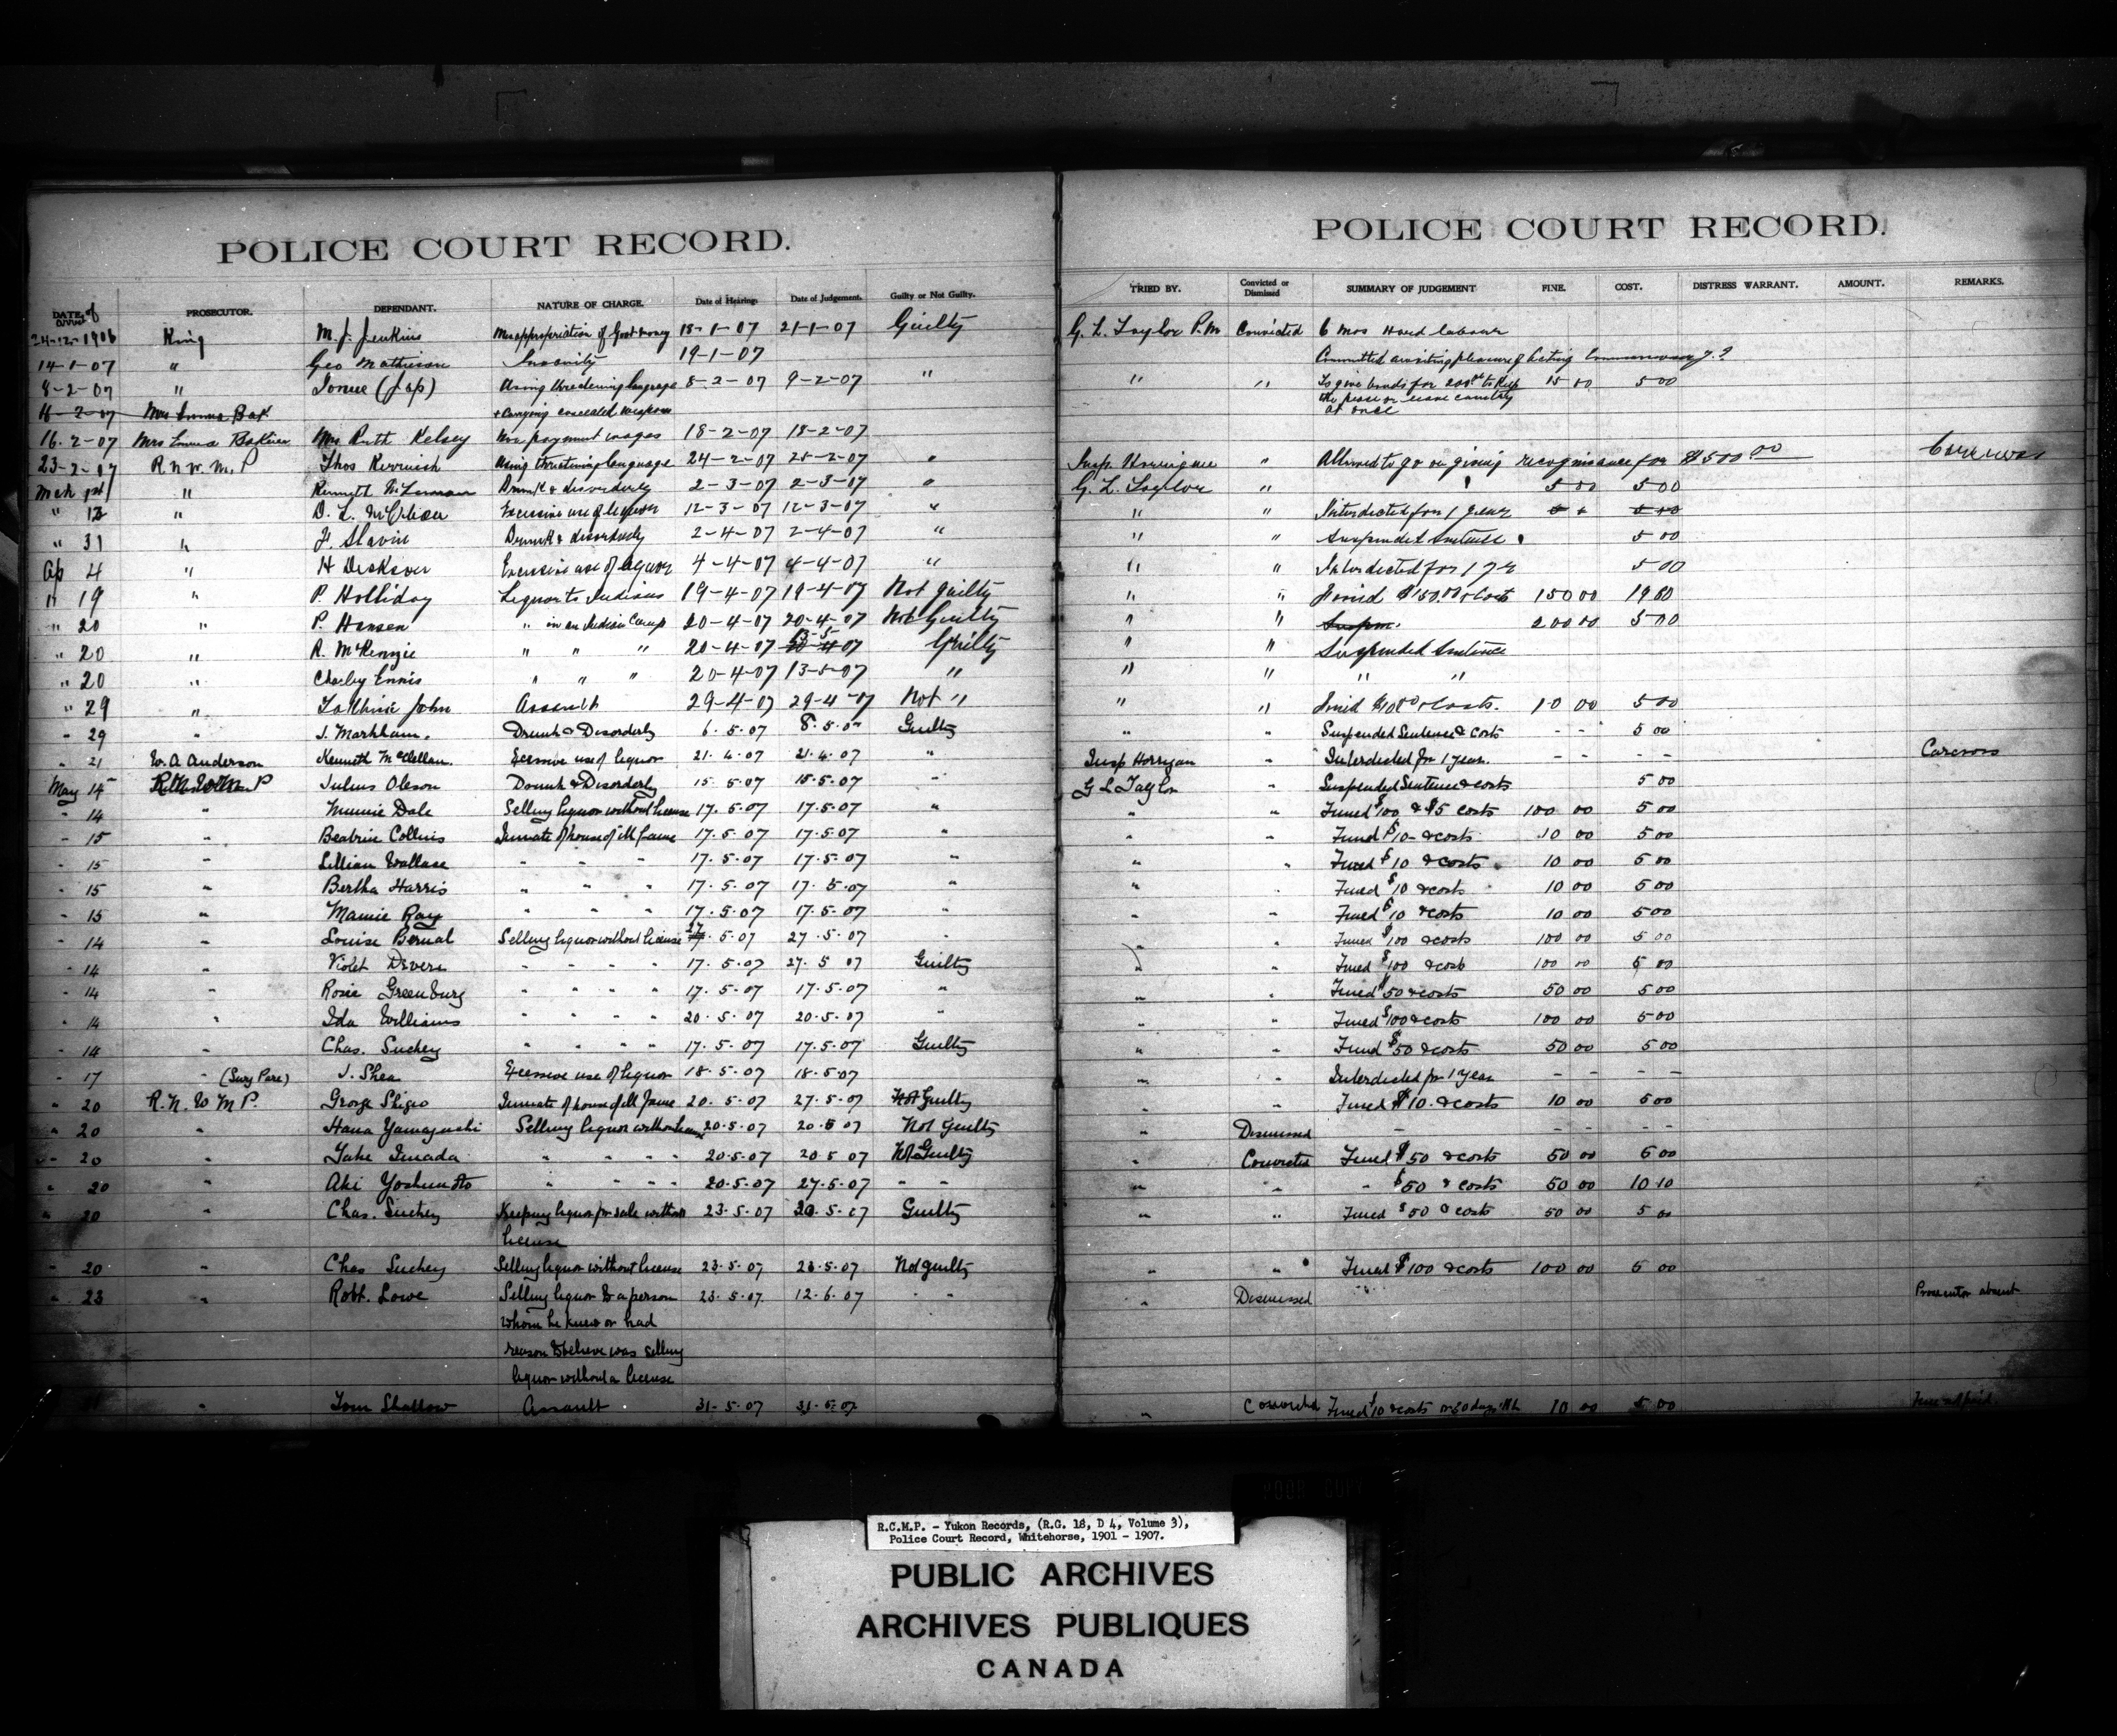 POLICE COURT RECORD.
DATE of arrest PROSECUTOR. DEFENDANT. NATURE OF CHARGE. Date of Hearing. Date of Judgement. Guilty or Not Guilty.
24-12-1906 King M. J. Jenkins Misappropriation of Govt money 18-1-07 21-1-07 Guilty
14-1-07 " Geo Mathieson Insanity 19-1-07
8-2-07 " (Jap) Using threatening language 8-2-07 9-2-07 "
16-2-07 Mrs Emma Bak + Carrying concealed weapons
16-2-07 Mrs Emma Mrs Ruth Kelsey Non payment wages 18-2-07 18-2-07
23-2-07 R N W M. P Thos Using threatening language 24-2-07 25-2-07 "
Mch 1st " Kenneth Drunk & disorderly 2-3-07 2-3-07 "
" 12 " D. L. Excessive use of liquor 12-3-07 12-3-07 "
" 31 " F. Slavin Drunk & disorderly 2-4-07 2-4-07 "
Ap 4 " H Excessive use of liquor 4-4-07 4-4-07 "
" 19 " P. Holliday Liquor to Indians 19-4-07 19-4-07 Not guilty
" 20 " P. Hansen " in an Indian Camp 20-4-07 20-4-07 Not Guilty
" 20 " R. McKenzie " " " 20-4-07 13-5-07 Guilty
" 20 " Charley Ennis " " " 20-4-07 13-5-07 "
" 29 " John Assault 29-4-07 29-4-07 Not "
" 29 " J. Markham. Drunk & Disorderly 6.5.07 8.5.07 Guilty
" 21 W. A Anderson Kenneth McClellan. Excessive use of liquor 21.4.07 21.4.07 "
May 14 P Julius Oleson Drunk & Disorderly 15.5.07 15.5.07 "
" 14 " Minnie Dale Selling liquor without license 17.5.07 17.5.07 "
" 15 " Beatrice Collins Inmate of house of ill fame 17.5.07 17.5.07 "
" 15 " Lillian Wallace " " " 17.5.07 17.5.07 "
" 15 " Bertha Harris " " " 17.5.07 17.5.07 "
" 15 " Mamie Ray " " " 17.5.07 17.5.07 "
" 14 " Louise Bernal Selling liquor without license 27.5.07 27.5.07 "
" 14 " Violet Devere " " " " 17.5.07 27.5 07 Guilty
" 14 " Rosie Greenburg " " " " 17.5.07 17.5.07 "
" 14 " Ida Williams " " " " 20.5.07 20.5.07 "
" 14 " Chas. Suchey " " " " 17.5.07 17.5.07 Guilty
" 17 " J. Shea Excessive use of liquor 18.5.07 18.5.07
" 20 R. N. W M P. George Shigeo Inmate of house of ill fame 20.5.07 27.5.07 Not Guilty
" 20 " Hana Yamaguchi Selling liquor without license 20.5.07 20.5 07 Not guilty
" 20 " Take Imada " " " " 20.5.07 20.5 07 Not Guilty
" 20 " Aki Yoshimoto " " " " 20.5.07 27.5.07 " "
" 20 " Chas. Suchey Keeping liquor for sale without 23.5.07 23.5.07 Guilty
license
" 20 " Chas Suchey Selling liquor without license 23.5.07 23.5.07 Not guilty
" 23 " Robt. Lowe Selling liquor to a person 23.5.07 12.6.07 " "
whom he knew or had
reason to believe was selling
liquor without a license
31 " Tom Shallow Assault 31-5.07 31.5.07
POLICE COURT RECORD.
TRIED BY. Convicted or Dismissed SUMMARY OF JUDGEMENT FINE. COST. DISTRESS WARRANT. AMOUNT. REMARKS.
G. L. Taylor P.M Convicted 6 mos Hard labour
Committed awaiting pleasure of Acting Commissioner Y. T
" " To give bonds for 200 to keep 15 00 5 00
the peace or leave country
at once
Insp. Horrigan " Allowed to go on giving recognisance for $500 00
G. L. Taylor " 5 00 5 00
" " Interdicted for 1 year
" " Suspended Sentence 5 00
" " Interdicted for 1 yr 5 00
" " Fined $150.00 & Costs 150 00 19 60
" " Suspen. 200 00 5 00
" " Suspended Sentence
" " " "
" " Fined $10.00 & Costs. 10 00 5 00
" " Suspended Sentence & Costs - - 5 00
Insp Horrigan " Interdicted for 1 year. - - - Carcross
G L Taylor " Suspended Sentence & costs 5 00
" " Fined $100 & $5 costs 100 00 5 00
" " Fined $10- & costs 10 00 5 00
" " Fined $10 & costs 10 00 5 00
" " Fined $10 & costs 10 00 5 00
" " Fined $10 & costs 10 00 5 00
" " Fined $100 & costs 100 00 5 00
" " Fined $100 & costs 100 00 5 00
" " Fined $50 & costs 50 00 5 00
" " Fined $100 & costs 100 00 5 00
" " Fined $50 & costs 50 00 5 00
" " Interdicted for 1 year - - - -
" " Fined $10. & costs 10 00 5 00
" Dismissed - - - - -
" Convicted Fined $50 & costs 50 00 5 00
" " " $50 & costs 50 00 10 10
" " Fined $50 & costs 50 00 5 00
" " Fined $100 & costs 100 00 5 00
" Dismissed Prosecutor absent
" Convicted Fined $10 & costs 10 00 5 00
R.C.M.P. - Yukon Records, (R.G. 18, D 4, Volume 3),
Police Court Record, Whitehorse, 1901 - 1907.
PUBLIC ARCHIVES
ARCHIVES PUBLIQUES
CANADA